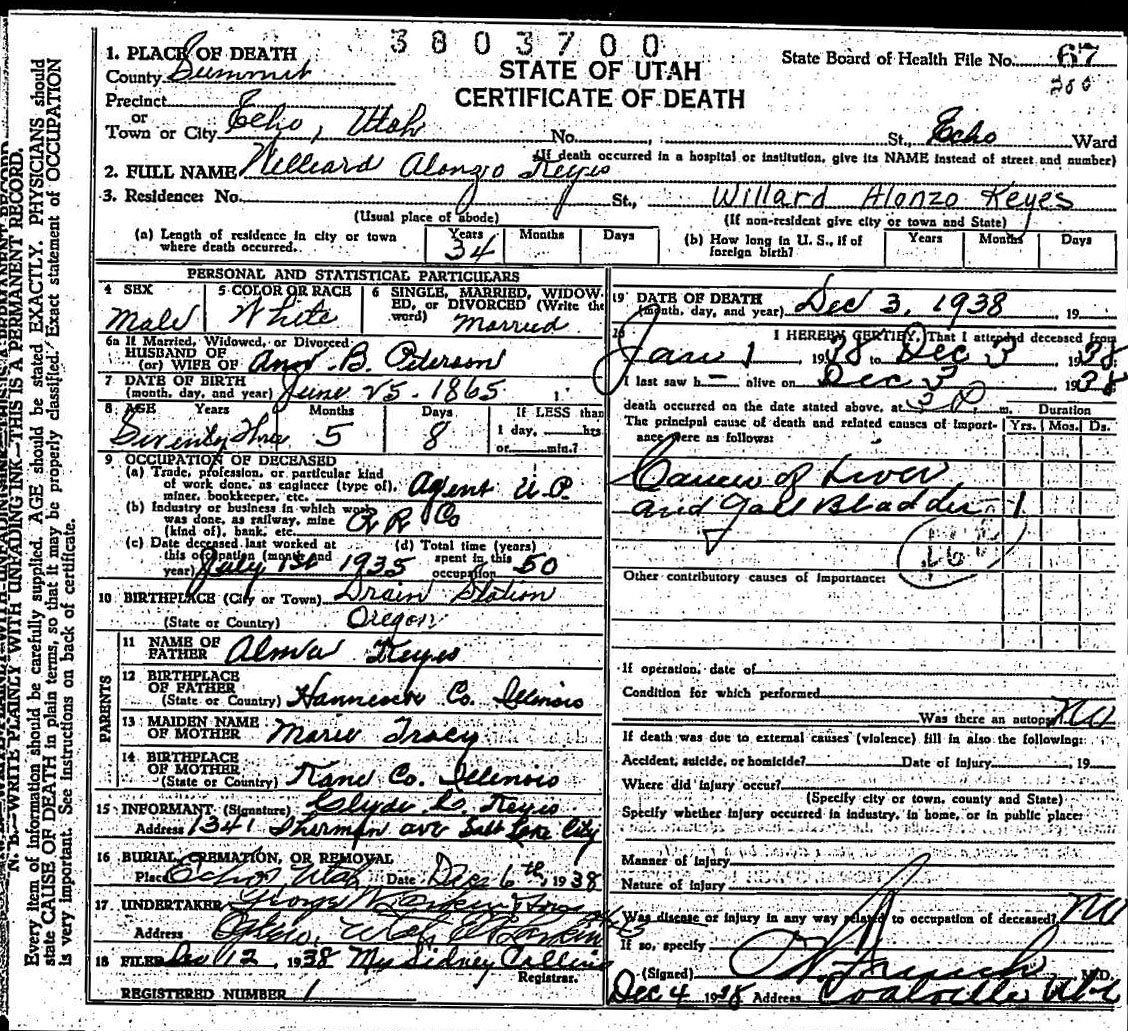 3803700
1. PLACE OF DEATH
County Summit
STATE OF UTAH
CERTIFICATE OF DEATH
State Board of Health File No. 67
Precinct
or
Town or City Echo, Utah No. St., Echo Ward
(If death occurred in a hospital or institution, give its NAME instead of street and number)
2. FULL NAME Williard Alonzo Keyes
3. Residence: No. St., Willard Alonzo Keyes
(Usual place of abode) (If non-resident give city or town and State)
(a) Length of residence in city or town where death occurred. Years 34 Months Days
(b) How long in U. S., if of foreign birth? Years Months Days
PERSONAL AND STATISTICAL PARTICULARS
4 SEX Male
5 COLOR OR RACE White
6 SINGLE, MARRIED, WIDOWED, or DIVORCED (Write the word) Married
6a If Married, Widowed, or Divorced
HUSBAND OF
(or) WIFE OF B. Peterson
7 DATE OF BIRTH
(month, day, and year) June 25. 1865
8 AGE Years Months 5 Days 8 If LESS than 1 day, hrs or min.?
9 OCCUPATION OF DECEASED
(a) Trade, profession, or particular kind of work done, as engineer (type of), miner, bookkeeper, etc. Agent U.P.
(b) Industry or business in which work was done, as railway, mine (kind of), bank, etc. R R Co
(c) Date deceased last worked at this occupation (month and year) July 1st 1935
(d) Total time (years) spent in this occupation 50
10 BIRTHPLACE (City or Town) Drain Station
(State or Country) Oregon
PARENTS
11 NAME OF FATHER Alma Keyes
12 BIRTHPLACE OF FATHER
(State or Country) Co. Illinois
13 MAIDEN NAME OF MOTHER Marie Tracy
14 BIRTHPLACE OF MOTHER
(State or Country) Kane Co. Illinois
15 INFORMANT (Signature) Clyde C. Keyes
Address 1341 Sherman ave Salt Lake City
16 BURIAL, CREMATION, OR REMOVAL
Place Echo Utah Date Dec 6th, 1938
17 UNDERTAKER George W. Larkin & Sons
Address Ogden, Utah
18 FILED Dec 12, 1938 Sidney Collins
Registrar.
REGISTERED NUMBER 1
19 DATE OF DEATH
(month, day, and year) Dec 3, 1938 19
20 I HEREBY CERTIFY, That I attended deceased from
Jan 1 1938 to Dec 3 1938
I last saw h— alive on Dec 3 1938
death occurred on the date stated above, at 3 P. m. Duration
The principal cause of death and related causes of importance were as follows: Yrs. Mos. Ds.
Cancer of Liver
and Gall Bladder 1
Other contributory causes of importance:
If operation, date of
Condition for which performed
Was there an autopsy No
If death was due to external causes (violence) fill in also the following:
Accident, suicide, or homicide? Date of injury 19
Where did injury occur?
(Specify city or town, county and State)
Specify whether injury occurred in industry, in home, or in public place:
Manner of injury
Nature of injury
Was disease or injury in any way related to occupation of deceased? No
If so, specify
(Signed) M.D.
Dec 4 1938 Address Coalville Utah
N. B.—WRITE PLAINLY WITH UNFADING INK—THIS IS A PERMANENT RECORD.
Every item of information should be carefully supplied. AGE should be stated EXACTLY. PHYSICIANS should
state CAUSE OF DEATH in plain terms, so that it may be properly classified. Exact statement of OCCUPATION
is very important. See instructions on back of certificate.